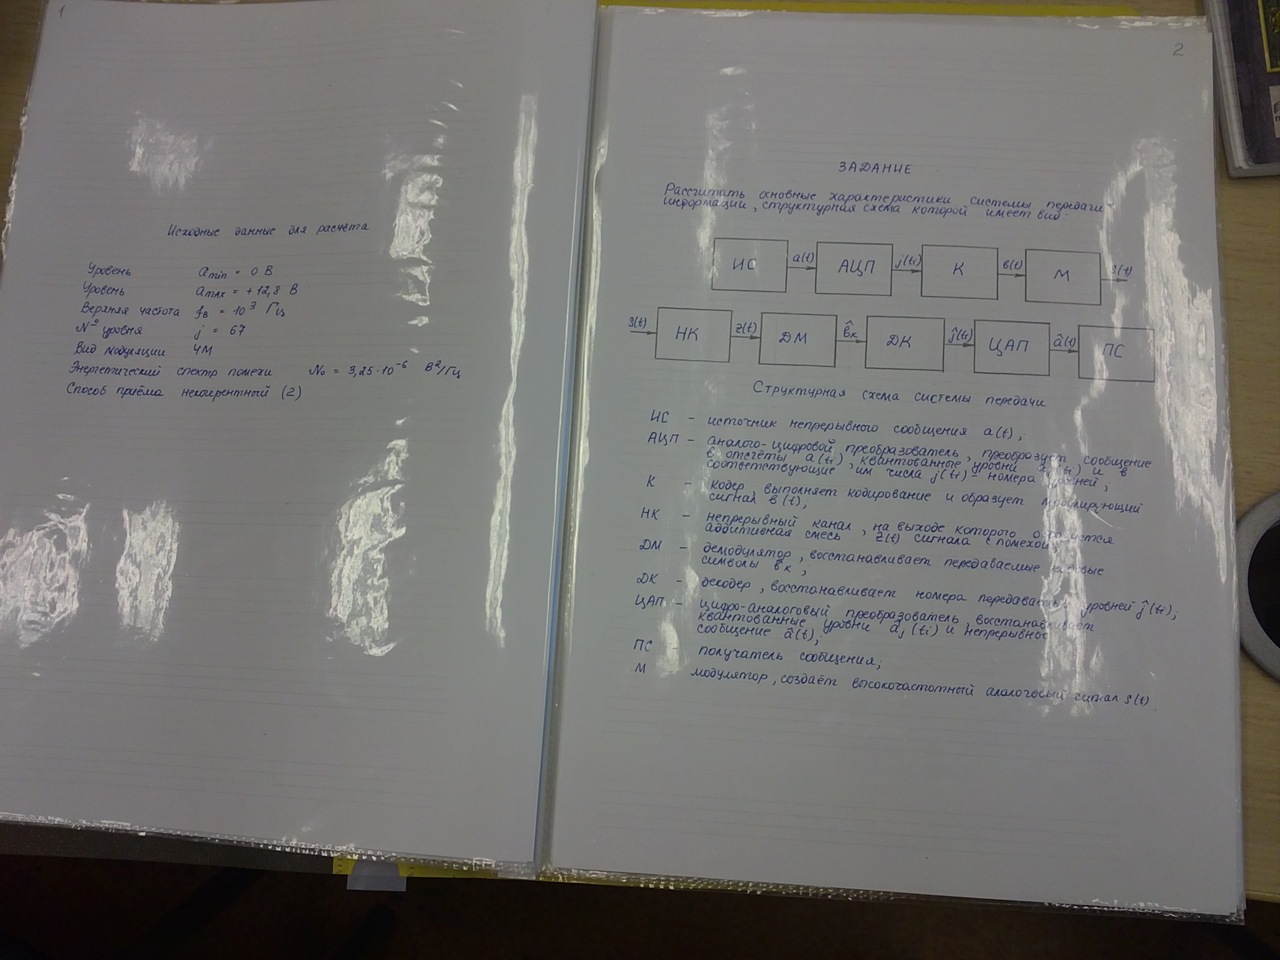 1
Исходные данные для расчёта
Уровень amin = 0 В
Уровень amax = +12,8 В
Верхняя частота fв = 10³ Гц
№ уровня j = 67
Вид модуляции ЧМ
Энергетический спектр помехи N₀ = 3,25·10⁻⁶ В²/Гц
Способ приёма некогерентный (2)
2
ЗАДАНИЕ
Рассчитать основные характеристики системы передачи
информации, структурная схема которой имеет вид:
ИС a(t) АЦП j(ti) К в(t) М s(t)
s(t) НК z(t) ДМ в̂к ДК ĵ(ti) ЦАП â(t) ПС
Структурная схема системы передачи
ИС – источник непрерывного сообщения a(t);
АЦП – аналого-цифровой преобразователь, преобразует сообщение
в отсчёты a(ti), квантованные уровни (ti) и в
соответствующие им числа j(ti) – номера уровней;
К – кодер выполняет кодирование и образует модулирующий
сигнал в(t);
НК – непрерывный канал, на выходе которого образуется
аддитивная смесь z(t) сигнала с помехой;
ДМ – демодулятор, восстанавливает передаваемые кодовые
символы в̂к;
ДК – декодер, восстанавливает номера передаваемых уровней ĵ(ti);
ЦАП – цифро-аналоговый преобразователь, восстанавливает
квантованные уровни âj(ti) и непрерывное
сообщение â(t);
ПС – получатель сообщения;
М модулятор, создаёт высокочастотный аналоговый сигнал s(t).